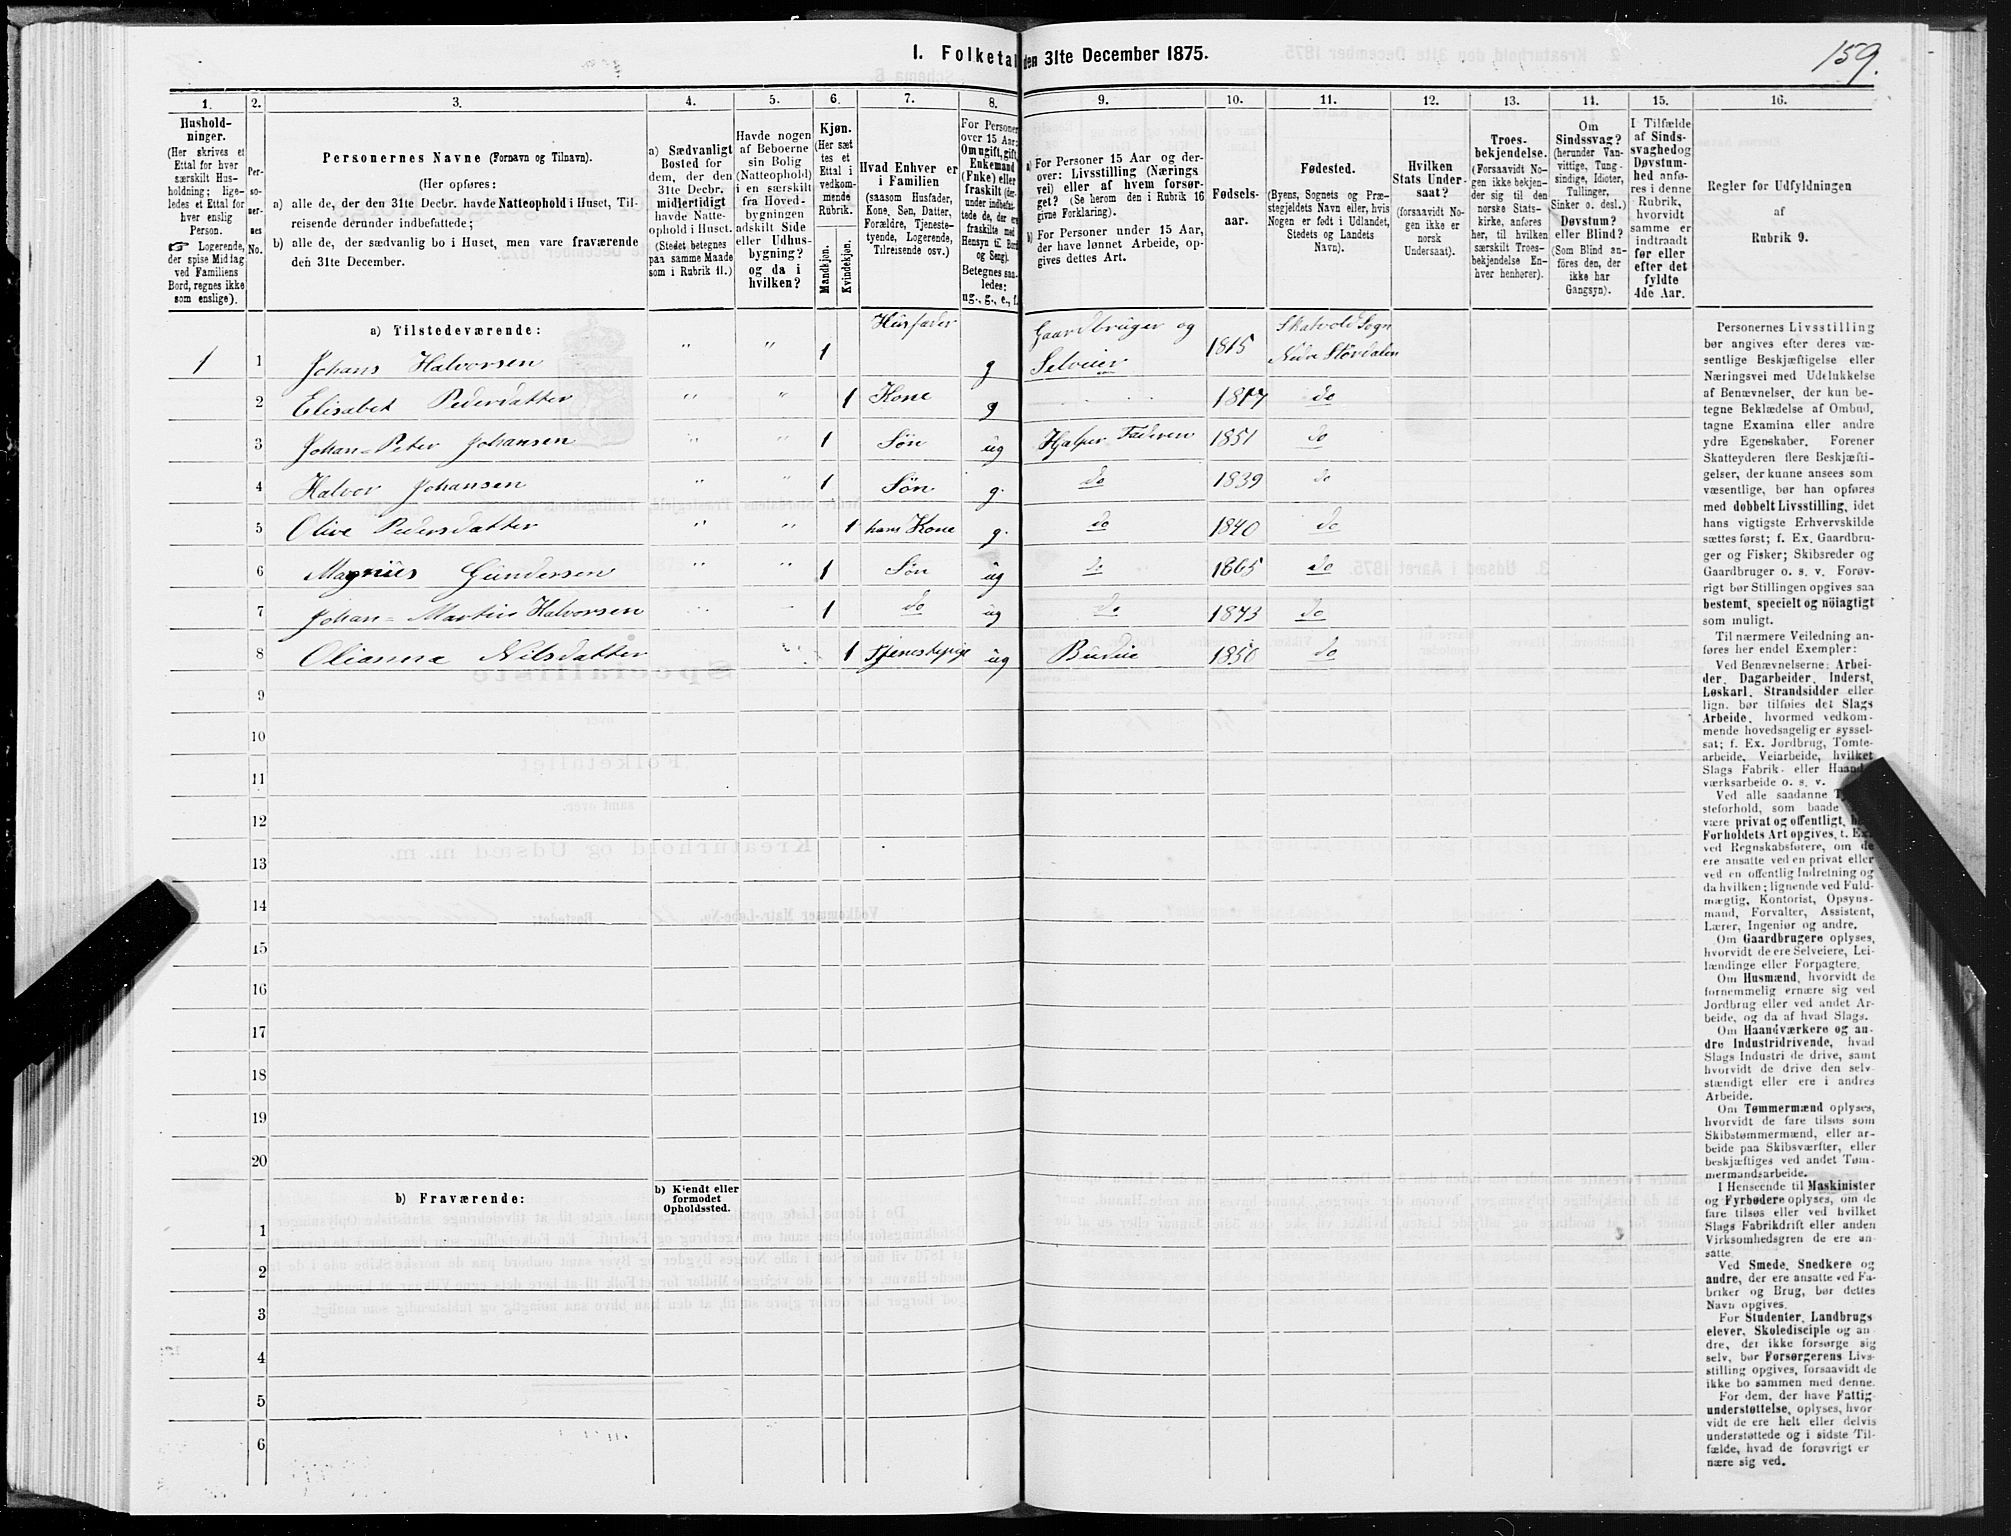 159.
I. Folketal den 31te December 1875.
1. 2. 3. 4. 5. 6. 7. 8. 9. 10. 11. 12. 13. 14. 15. 16.
Hushold-
ninger.
(Her skrives et
Ettal for hver
særskilt Hus-
holdning; lige-
ledes et Ettal for
hver enslig
Person.
☞ Logerende,
der spise Middag
ved Familiens
Bord, regnes ikke
som enslige).
Per-
so-
ner-
nes
No.
Personernes Navne (Fornavn og Tilnavn).
(Her opføres:
a) alle de, der den 31te Decbr. havde Natteophold i Huset, Til-
reisende derunder indbefattede;
b) alle de, der sædvanlig bo i Huset, men vare fraværende
den 31te December.
a) Sædvanligt
Bosted for
dem, der den
31te Decbr.
midlertidigt
havde Natte-
ophold i Huset.
(Stedet betegnes
paa samme Maade
som i Rubrik 11.)
Havde nogen
af Beboerne
sin Bolig
(Natteophold)
i en særskilt
fra Hoved-
bygningen
adskilt Side
eller Udhus-
bygning?
og da i
hvilken?
Kjøn.
(Her sæt
tes et
Ettal i
vedkom-
mende
Rubrik.
Mandkjøn.
Kvindekjøn.
Hvad Enhver er
i Familien
(saasom Husfader,
Kone, Søn, Datter,
Forældre, Tjeneste-
tyende, Logerende,
Tilreisende osv.)
For Personer
over 15 Aar:
Om ugift, gift,
Enkemand
(Enke) eller
fraskilt (der-
under indbefat-
tede de, der ere
fraskilte med
Hensyn til Bord
og Seng).
Betegnes saa-
ledes:
ug., g., e., f.
a) For Personer 15 Aar og der-
over: Livsstilling (Nærings
vei) eller af hvem forsør-
get? (Se herom den i Rubrik 16
givne Forklaring).
b) For Personer under 15 Aar,
der have lønnet Arbeide, op-
gives dettes Art.
Fødsels-
aar.
Fødested.
(Byens, Sognets og Præ-
stegjeldets Navn eller, hvis
Nogen er født i Udlandet,
Stedets og Landets
Navn).
Hvilken
Stats Under-
saat?
(forsaavidt No-
gen ikke er
norsk
Undersaat).
Troes-
bekjendelse.
(Forsaavidt No-
gen ikke bekjen-
der sig til den
norske Stats-
kirke, anføres
her, til hvilken
særskilt Troes-
bekjendelse En-
hver henhører).
Om
Sindssvag?
(herunder Van-
vittige, Tung-
sindige, Idioter,
Tullinger,
Sinker o. desl.)
Døvstum?
eller Blind?
(Som Blind an-
føres den, der
ikke har
Gangsyn).
I Tilfælde
af Sinds-
svaghed og
Døvstum-
hed anfø-
res i denne
Rubrik,
hvorvidt
samme er
indtraadt
før eller
efter det
fyldte
4de Aar.
Regler for Udfyldningen
af
Rubrik 9.
a) Tilstedeværende:
1 1 Johans Halvorsen " " 1 Husfader g Gaardbruger og Selveier 1815 Skatvold Sogn Nedre Stördalen
2 Elisabet Pedersdatter " " 1 Kone g 1817 do
3 Johan-Peter Johansen " " 1 Søn ug Hjelper Faderen 1851 do
4 Halvor Johansen " " 1 Søn g. do 1839 do
5 Olive Pedersdatter " " 1 hans Kone g. do 1840 do
6 Magnius Gundersen " " 1 Søn ug do 1865 do
7 Johan-Martin Halvorsen 1 do ug do 1873 do
8 Olianna Nilsdatter 1 Tjenestepige ug Budeie 1850 do
9
10
11
12
13
14
15
16
17
18
19
20
b) Fraværende:
b) Kjendt eller
formodet
Opholdssted.
1
2
3
4
5
6
Personernes Livsstilling
bør angives efter deres væ-
sentlige Beskjæftigelse eller
Næringsvei med Udelukkelse
af Benævnelser, der kun be-
tegne Beklædelse af Ombud,
tagne Examina eller andre
ydre Egenskaber. Forener
Skatteyderen flere Beskjæfti-
gelser, der kunne ansees som
væsentlige, bør han opføres
med dobbelt Livsstilling, idet
hans vigtigste Erhvervskilde
sættes først; f. Ex. Gaardbru-
ger og Fisker; Skibsreder og
Gaardbruger o. s. v. Forøv-
rigt bør Stillingen opgives saa
bestemt, specielt og nöiagtigt
som muligt.
Til nærmere Veiledning an-
føres her endel Exempler:
Ved Benævnelserne: Arbei-
der, Dagarbeider, Inderst,
Løskarl, Strandsidder eller
lign. bør tilføies det Slags
Arbeide, hvormed vedkom-
mende hovedsagelig er syssel-
sat; f. Ex. Jordbrug, Tomte-
arbeide, Veiarbeide, hvilket
Slags Fabrik- eller Haand-
værksarbeide o. s. v.
Ved alle saadanne
steforhold, som baade
være privat og offentligt,
Forholdets Art opgives, t. Ex.
ved Regnskabsførere, om de
ere ansatte ved en privat eller
ved en offentlig Indretning og
da hvilken; lignende ved Fuld-
mægtig, Kontorist, Opsyns-
mand, Forvalter, Assistent,
Lærer, Ingeniør og andre.
Om Gaardbrugere oplyses,
hvorvidt de ere Selveiere, Lei-
lændinge eller Forpagtere.
Om Husmænd, hvorvidt de
fornemmelig ernære sig ved
Jordbrug eller ved andet Ar-
beide, og da af hvad Slags.
Om Haandværkere og an-
dre Industridrivende, hvad
Slags Industri de drive, samt
hvorvidt de drive den selv-
stændigt eller ere i andres
Arbeide.
Om Tømmermænd oplyses,
hvorvidt de fare tilsøs som
Skibstømmermænd, eller ar-
beide paa Skibsværfter, eller
beskjæftiges ved andet Tøm-
mermandsarbeide.
I Henseende til Maskinister
og Fyrbødere oplyses, om de
fare tilsøs eller ved hvilket
Slags Fabrikdrift eller anden
Virksomhedsgren de ere an-
satte.
Ved Smede, Snedkere og
andre, der ere ansatte ved Fa-
briker og Brug, bør dettes
Navn opgives.
For Studenter, Landbrugs
elever, Skoledisciple og an-
dre, der ikke forsørge sig
selv, bør Forsørgerens Livs-
stilling opgives, forsaavidt de
ikke bo sammen med denne.
For dem, der have Fattig-
understøttelse, oplyses, hvor-
vidt de ere helt eller delvis
understøttede og i sidste Til-
fælde, hvad de forøvrigt er
nære sig ved.